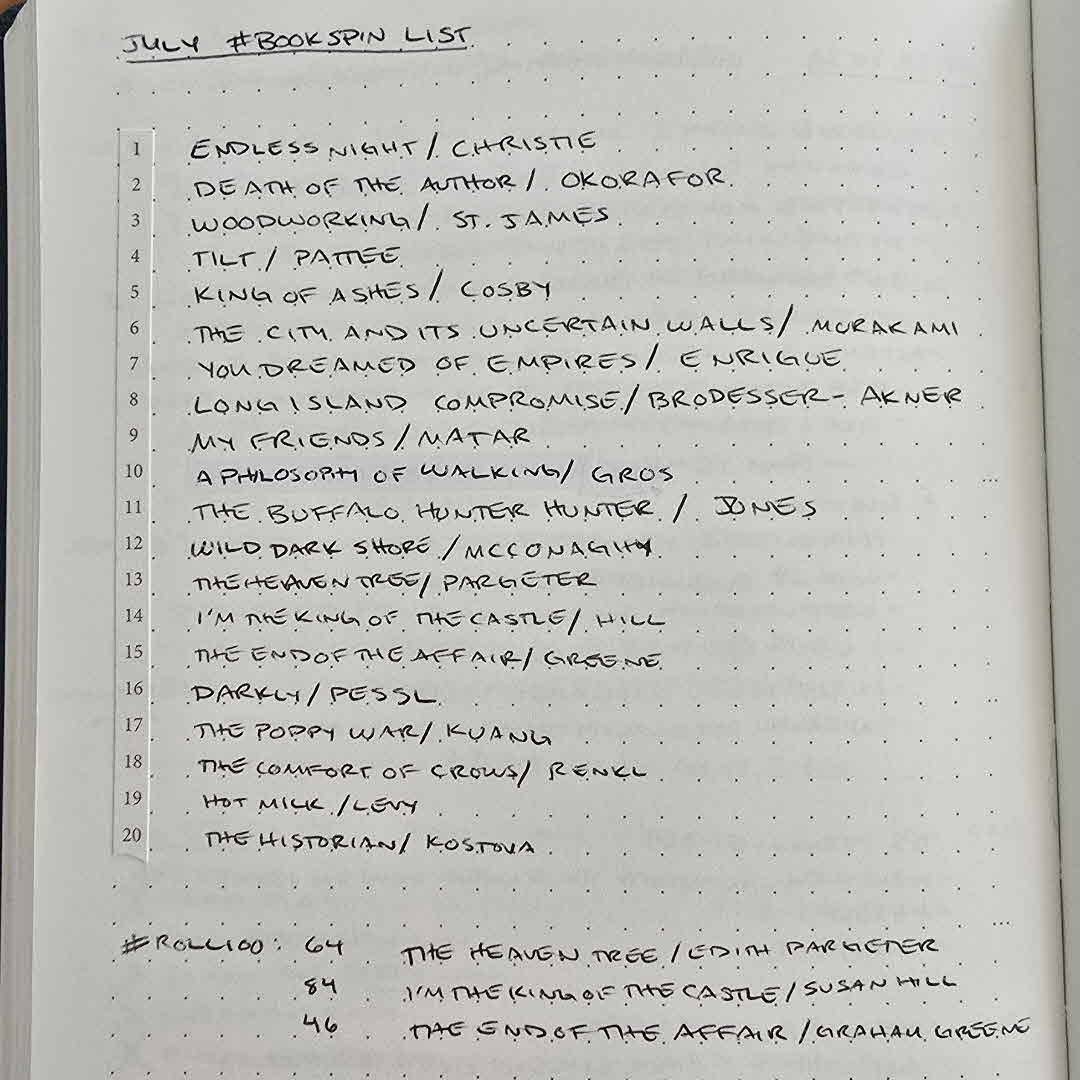 JULY #BOOKSPIN LIST
1 ENDLESS NIGHT / CHRISTIE
2 DEATH OF THE AUTHOR / OKORAFOR
3 WOODWORKING / ST. JAMES
4 TILT / PATTEE
5 KING OF ASHES / COSBY
6 THE CITY AND ITS UNCERTAIN WALLS / MURAKAMI
7 YOU DREAMED OF EMPIRES / ENRIGUE
8 LONG ISLAND COMPROMISE / BRODESSER-AKNER
9 MY FRIENDS / MATAR
10 A PHILOSOPHY OF WALKING / GROS
11 THE BUFFALO HUNTER HUNTER / JONES
12 WILD DARK SHORE / MCCONAGHY
13 THE HEAVEN TREE / PARGETER
14 I'M THE KING OF THE CASTLE / HILL
15 THE END OF THE AFFAIR / GREENE
16 DARKLY / PESSL
17 THE POPPY WAR / KUANG
18 THE COMFORT OF CROWS / RENKL
19 HOT MILK / LEVY
20 THE HISTORIAN / KOSTOVA
#ROLL100: 64 THE HEAVEN TREE / EDITH PARGETER
84 I'M THE KING OF THE CASTLE / SUSAN HILL
46 THE END OF THE AFFAIR / GRAHAM GREENE